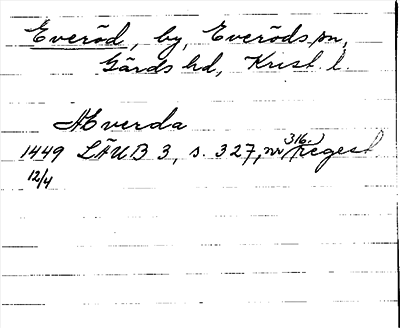 Everöd, by, Everöds sn,
Gärds hd, Krist. l.
Æverda
1449 LÄUB 3, s. 327, nr 316. regest
12/4